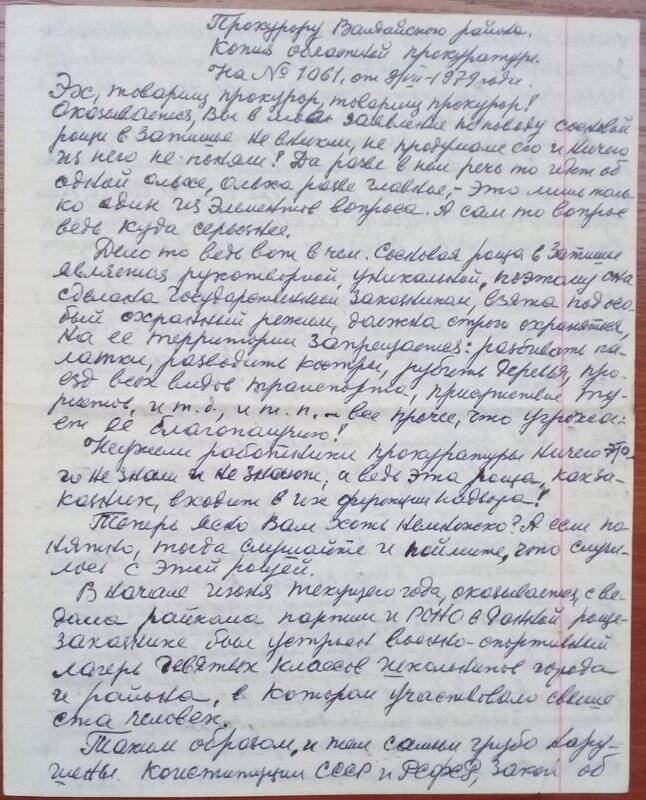 Прокурору Валдайского района.
Копия областной прокуратуре.
На № 1061. от 9/VII-1979 года.
Эх, товарищ прокурор, товарищ прокурор!
Оказывается, Вы в моём заявлении по поводу сосновой
рощи в Затишье не вникли, не продумали его и ничего
из него не поняли! Да разве в нём речь то идёт об
одной ольхе, ольха разве главное, - это лишь толь-
ко один из элементов вопроса. А сам то вопрос
ведь куда серьёзнее.
Дело то ведь вот в чем. Сосновая роща в Затишье
является рукотворной, уникальной, поэтому она
сделана Государственным Заказником, взята под осо-
бый охранный режим, должна строго охраняться,
на её территории запрещается: разбивать па-
латки, разводить костры, рубить деревья, про-
езд всех видов транспорта, присутствие ту-
ристов, и т.д., и т.п. - все прочее, что угрожа-
ет её благополучию!
Неужели работники прокуратуры ничего это-
го не знали и не знают, а ведь эта роща, как за-
казник, входит в их функции надзора!
Теперь ясно Вам хоть немножко? А если по-
нятно, тогда слушайте и поймите, что случи-
лось с этой рощей.
В начале июня текущего года, оказывается, с ве-
дома райкома партии и РОНО в данной роще-
заказнике был устроен военно-спортивный
лагерь девятых классов школьников города
и района, в котором участвовало свыше
ста человек.
Таким образом, и тем самым грубо нару-
шены Конституции СССР и РСФСР, Закон об